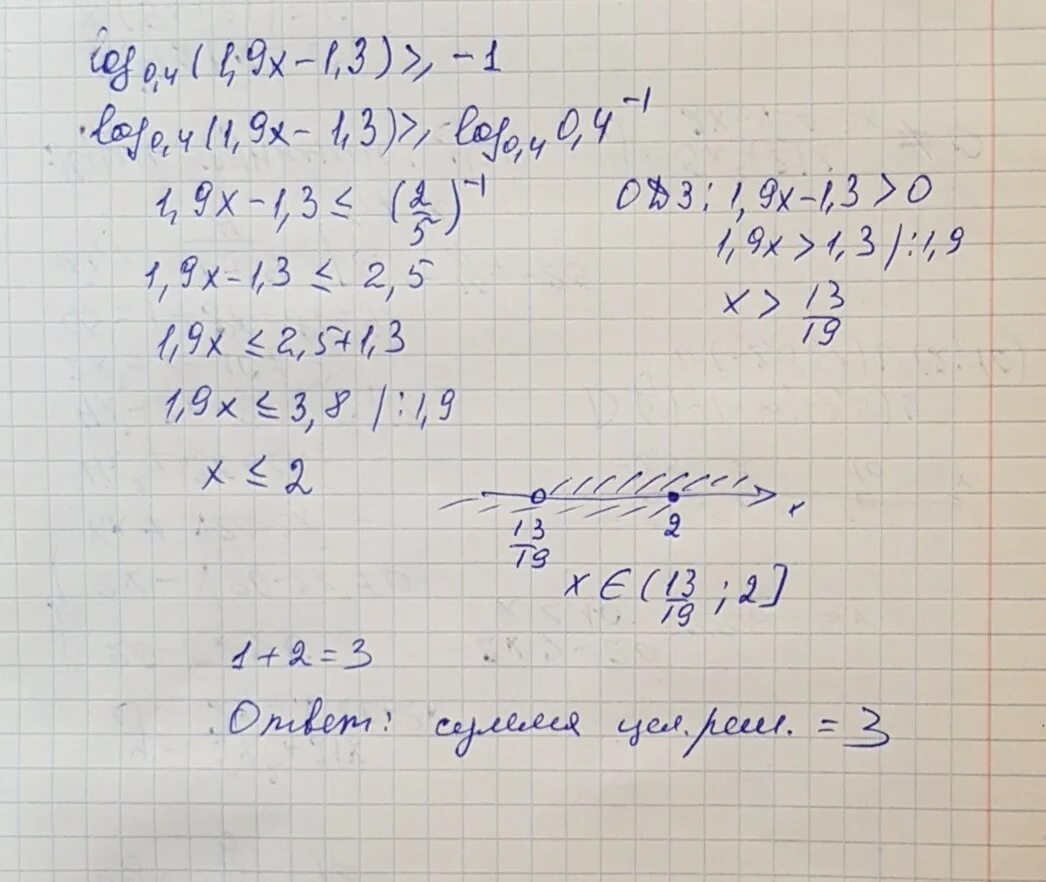 log₀,₄(1,9x-1,3)≥-1
log₀,₄(1,9x-1,3)≥log₀,₄0,4⁻¹
1,9x-1,3≤(2/5)⁻¹
1,9x-1,3≤2,5
1,9x≤2,5+1,3
1,9x≤3,8 |:1,9
x≤2
ОДЗ: 1,9x-1,3>0
1,9x>1,3 |:1,9
x>13/19
13/19 2 x
x∈(13/19;2]
1+2=3
Ответ: сумма цел. реш. = 3